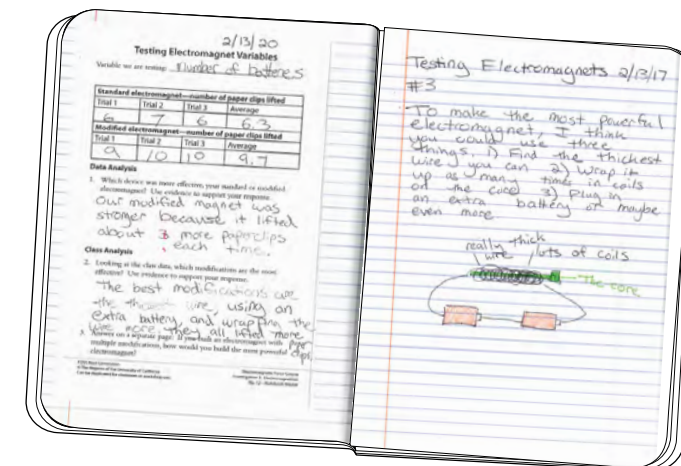 2/13/20
Testing Electromagnet Variables
Variable we are testing: number of batteries
Standard electromagnet—number of paper clips lifted
Trial 1 Trial 2 Trial 3 Average
6 7 6 6.3
Modified electromagnet—number of paper clips lifted
Trial 1 Trial 2 Trial 3 Average
9 10 10 9.7
Data Analysis
1. Which device was more effective, your standard or modified
electromagnet? Use evidence to support your response.
Our modified magnet was
stronger because it lifted
about 3 more paperclips
each time.
Class Analysis
2. Looking at the class data, which modifications are the most
effective? Use evidence to support your response.
The best modifications are
the wire, using an
extra battery, and wrapping the
wire more. They all lifted more
paper clips.
3. Answer on a separate page: If you built an electromagnet with
multiple modifications, how would you build the most powerful
electromagnet?
Testing Electromagnets 2/13/17
#3
To make the most powerful
electromagnet, I think
you could use three
things, 1) Find the thickest
wire you can 2) Wrap it
up as many times in coils
on the core 3) Plug in
an extra battery or maybe
even more
really thick
wire
lots of coils
The core